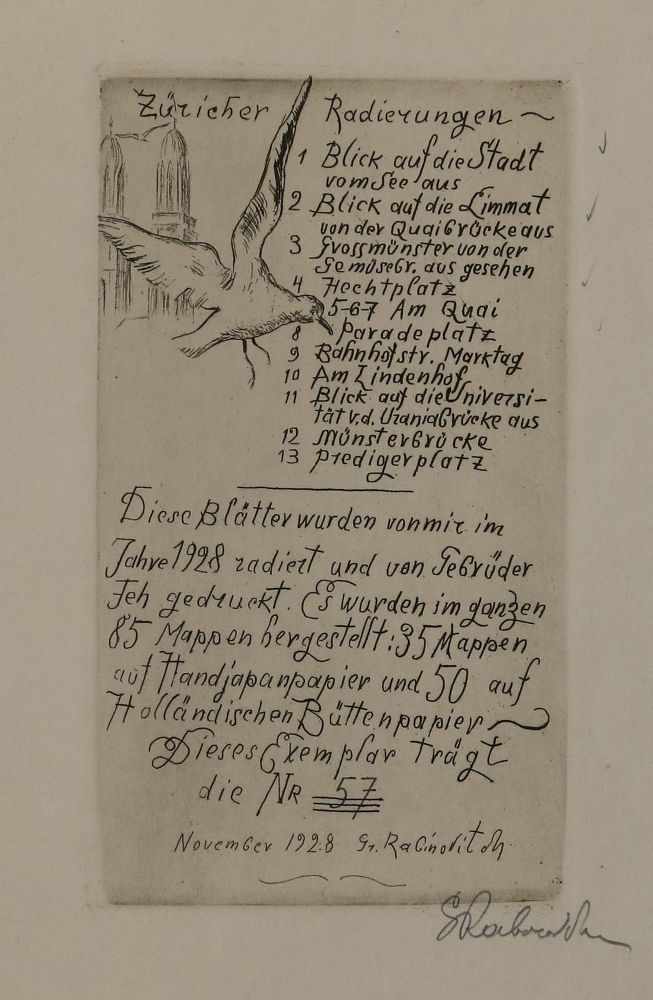 Züricher Radierungen ~
1 Blick auf die Stadt
vom See aus
2 Blick auf die Limmat
von der Quaibrücke aus
3 Grossmünster von der
Gemüsebr. aus gesehen
4 Hechtplatz
5-6-7 Am Quai
8 Paradeplatz
9 Bahnhofstr. Marktag
10 Am Lindenhof
11 Blick auf die Universi-
tät v.d. Uraniabrücke aus
12 Münsterbrücke
13 Predigerplatz
Diese Blätter wurden von mir im
Jahre 1928 radiert und von Gebrüder
Feh gedruckt. Es wurden im ganzen
85 Mappen hergestellt: 35 Mappen
auf Handjapanpapier und 50 auf
Holländischen Büttenpapier ~
Dieses Exemplar trägt
die Nr 57
November 1928 Gr. Rabinovitch
GRabinovitch